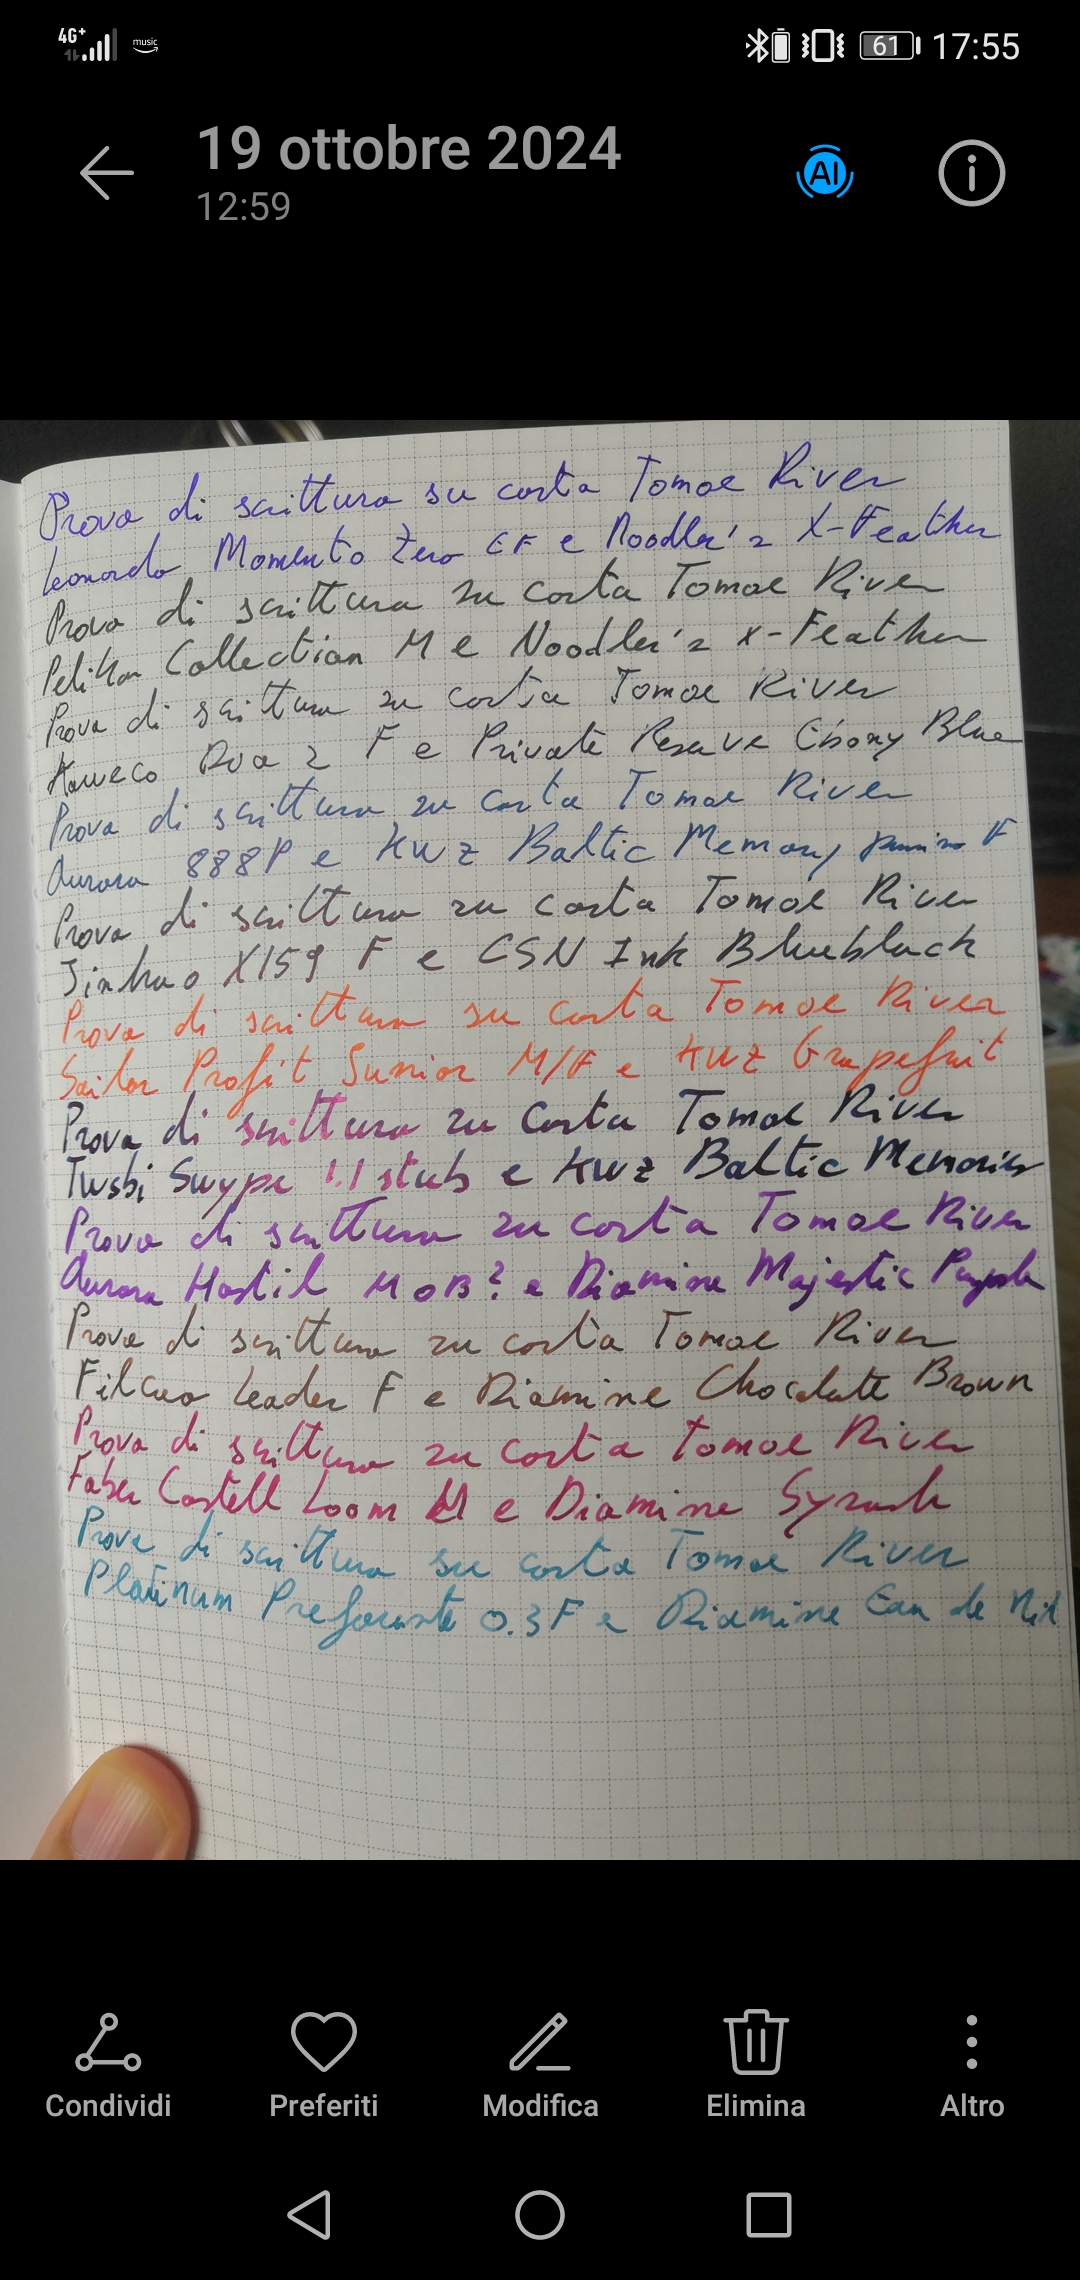 4G+
music
61
17:55
19 ottobre 2024
12:59
AI
Prova di scrittura su carta Tomoe River
Leonardo Momento Zero EF e Noodler's X-Feather
Prova di scrittura su carta Tomoe River
Pelikan Collection M e Noodler's X-Feather
Prova di scrittura su carta Tomoe River
Kaweco 2 F e Private Reserve Ebony Blue
Prova di scrittura su carta Tomoe River
Aurora 888P e KWZ Baltic Memory F
Prova di scrittura su carta Tomoe River
Jinhao X159 F e CSN Ink Blueblack
Prova di scrittura su carta Tomoe River
Sailor Profit Junior M/F e KWZ Grapefruit
Prova di scrittura su carta Tomoe River
Twsbi Swype 1.1 stub e KWZ Baltic Memories
Prova di scrittura su carta Tomoe River
Aurora Hastil M o B? e Diamine Majestic Purple
Prova di scrittura su carta Tomoe River
Filcao Leader F e Diamine Chocolate Brown
Prova di scrittura su carta Tomoe River
Faber Castell Loom M e Diamine Syrah
Prova di scrittura su carta Tomoe River
Platinum Prefounte 0.3 F e Diamine Eau de Nil
Condividi
Preferiti
Modifica
Elimina
Altro